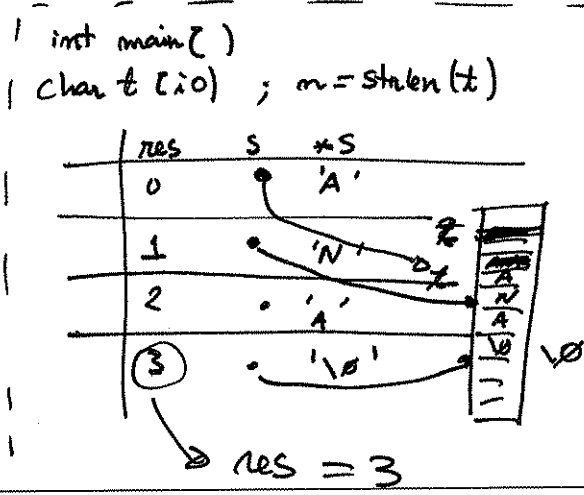 int main()
char t[10) ; n = strlen(t)
res s *s
0 'A'
1 'N' t
A
2 'A' N
A
3 '\0' \0 \0
res = 3